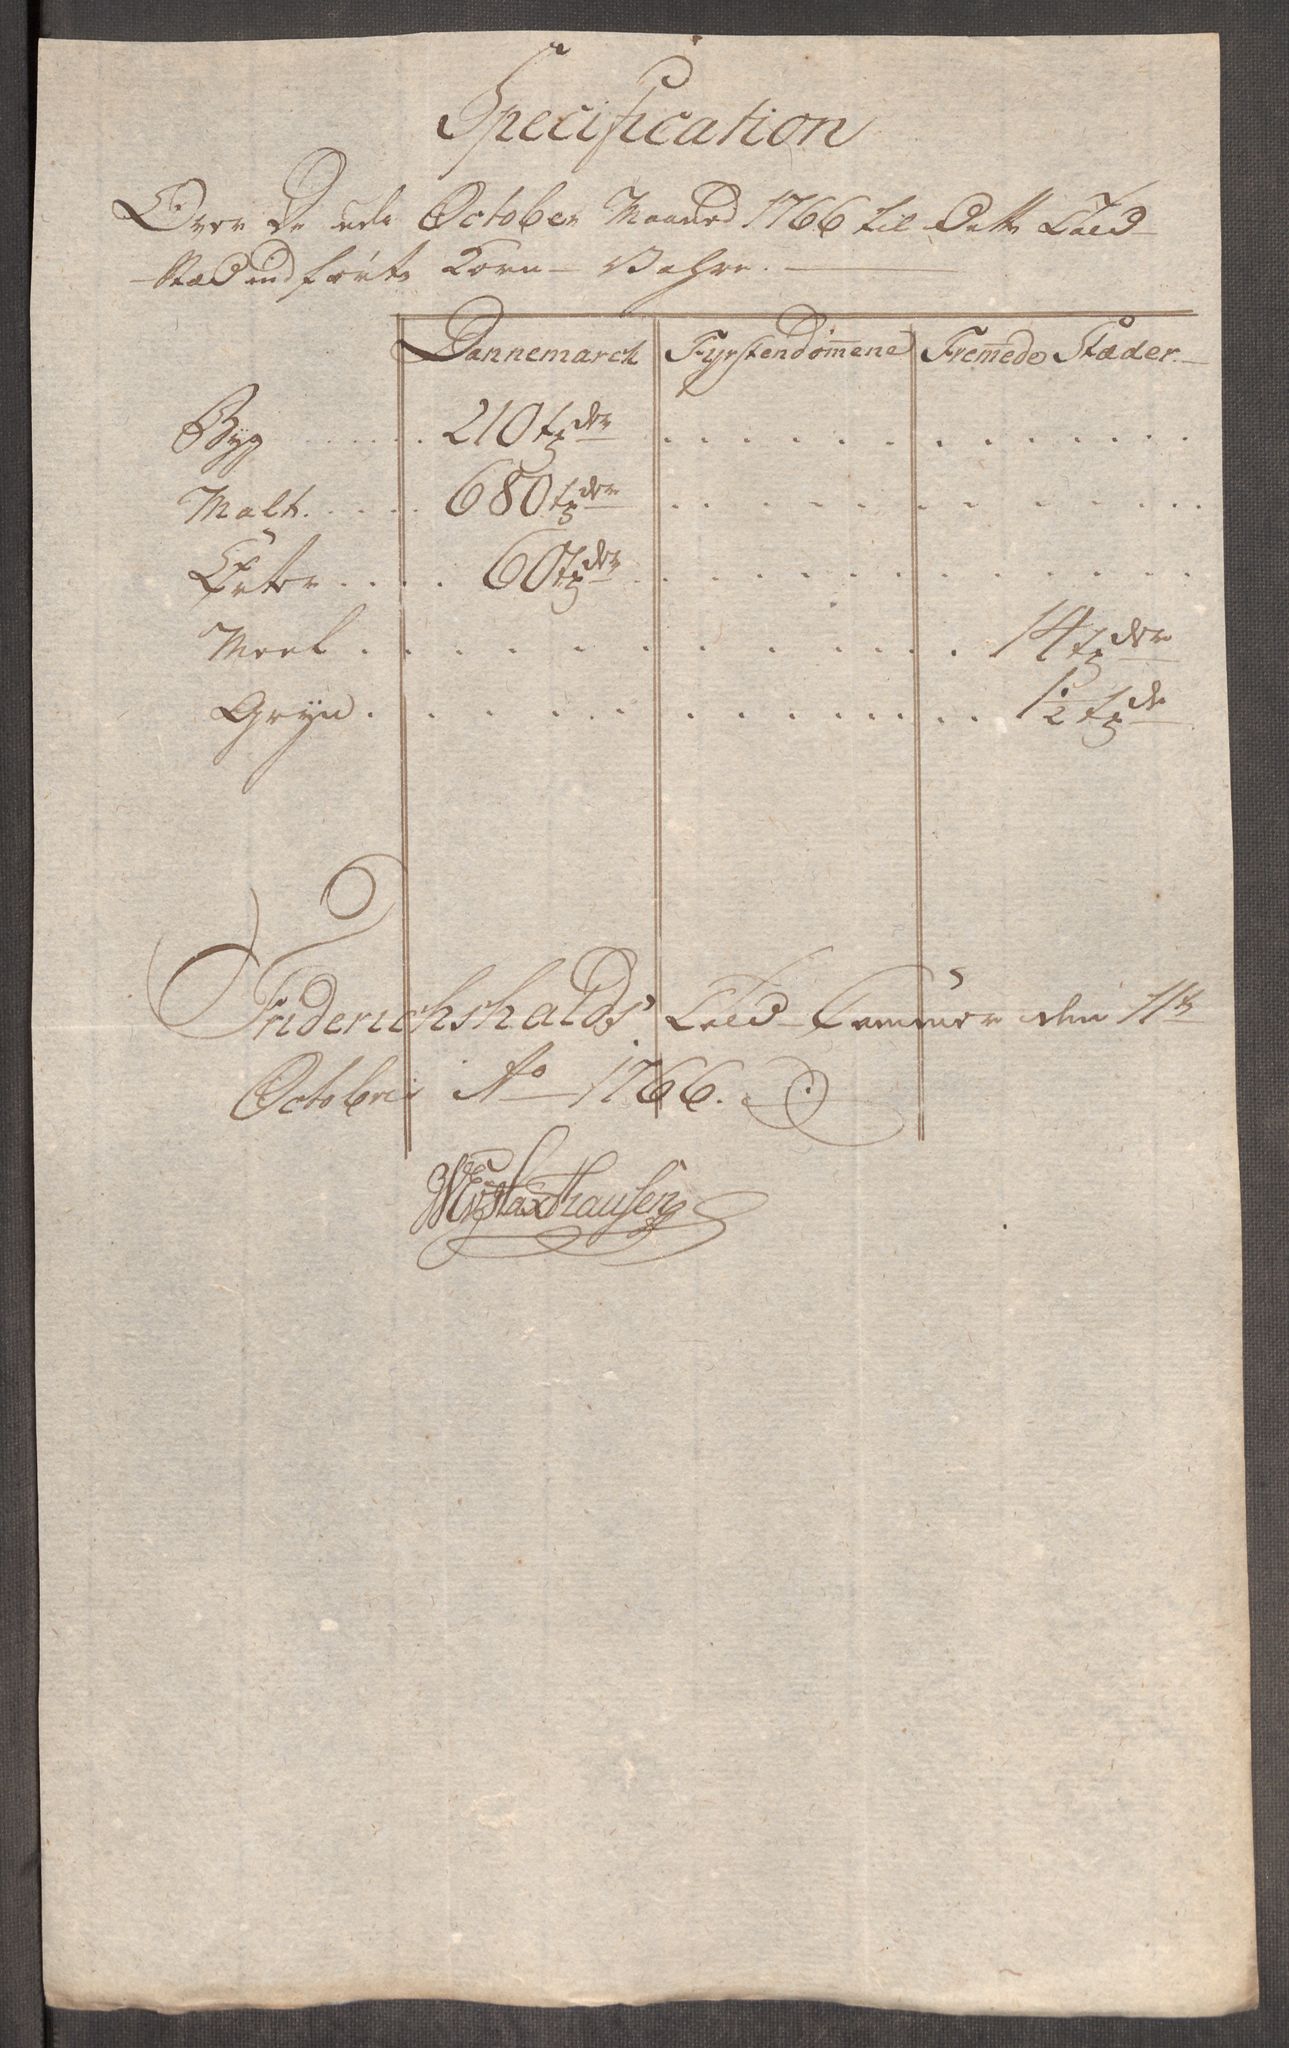 Specification
Over De udi October Maaned 1766 til Dette Told-
Stæd ind førte Korn- Vahre.
Dannemarch Fyrstendømmene Fremede Stæder
Byg 210 tder
Malt 680 tder
Erter 60 tder
Meel 14 tder
Gryn 1½ tde
Friderichshalds Told-Cammer den
Octobris Ao 1766.